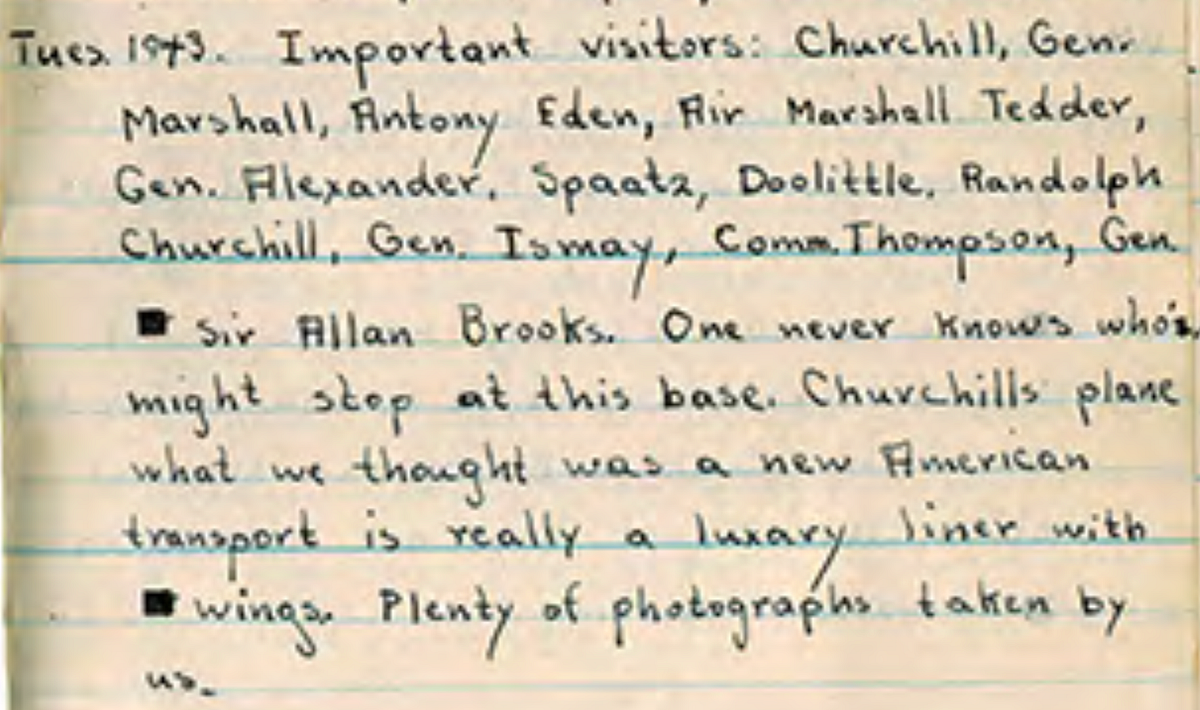 Tues. 1943. Important visitors: Churchill, Gen.
Marshall, Antony Eden, Air Marshall Tedder,
Gen. Alexander, Spaatz, Doolittle, Randolph
Churchill, Gen. Ismay, Comm. Thompson, Gen.
Sir Allan Brooks. One never knows who's
might stop at this base. Churchills plane
what we thought was a new American
transport is really a luxary liner with
wings. Plenty of photographs taken by
us.